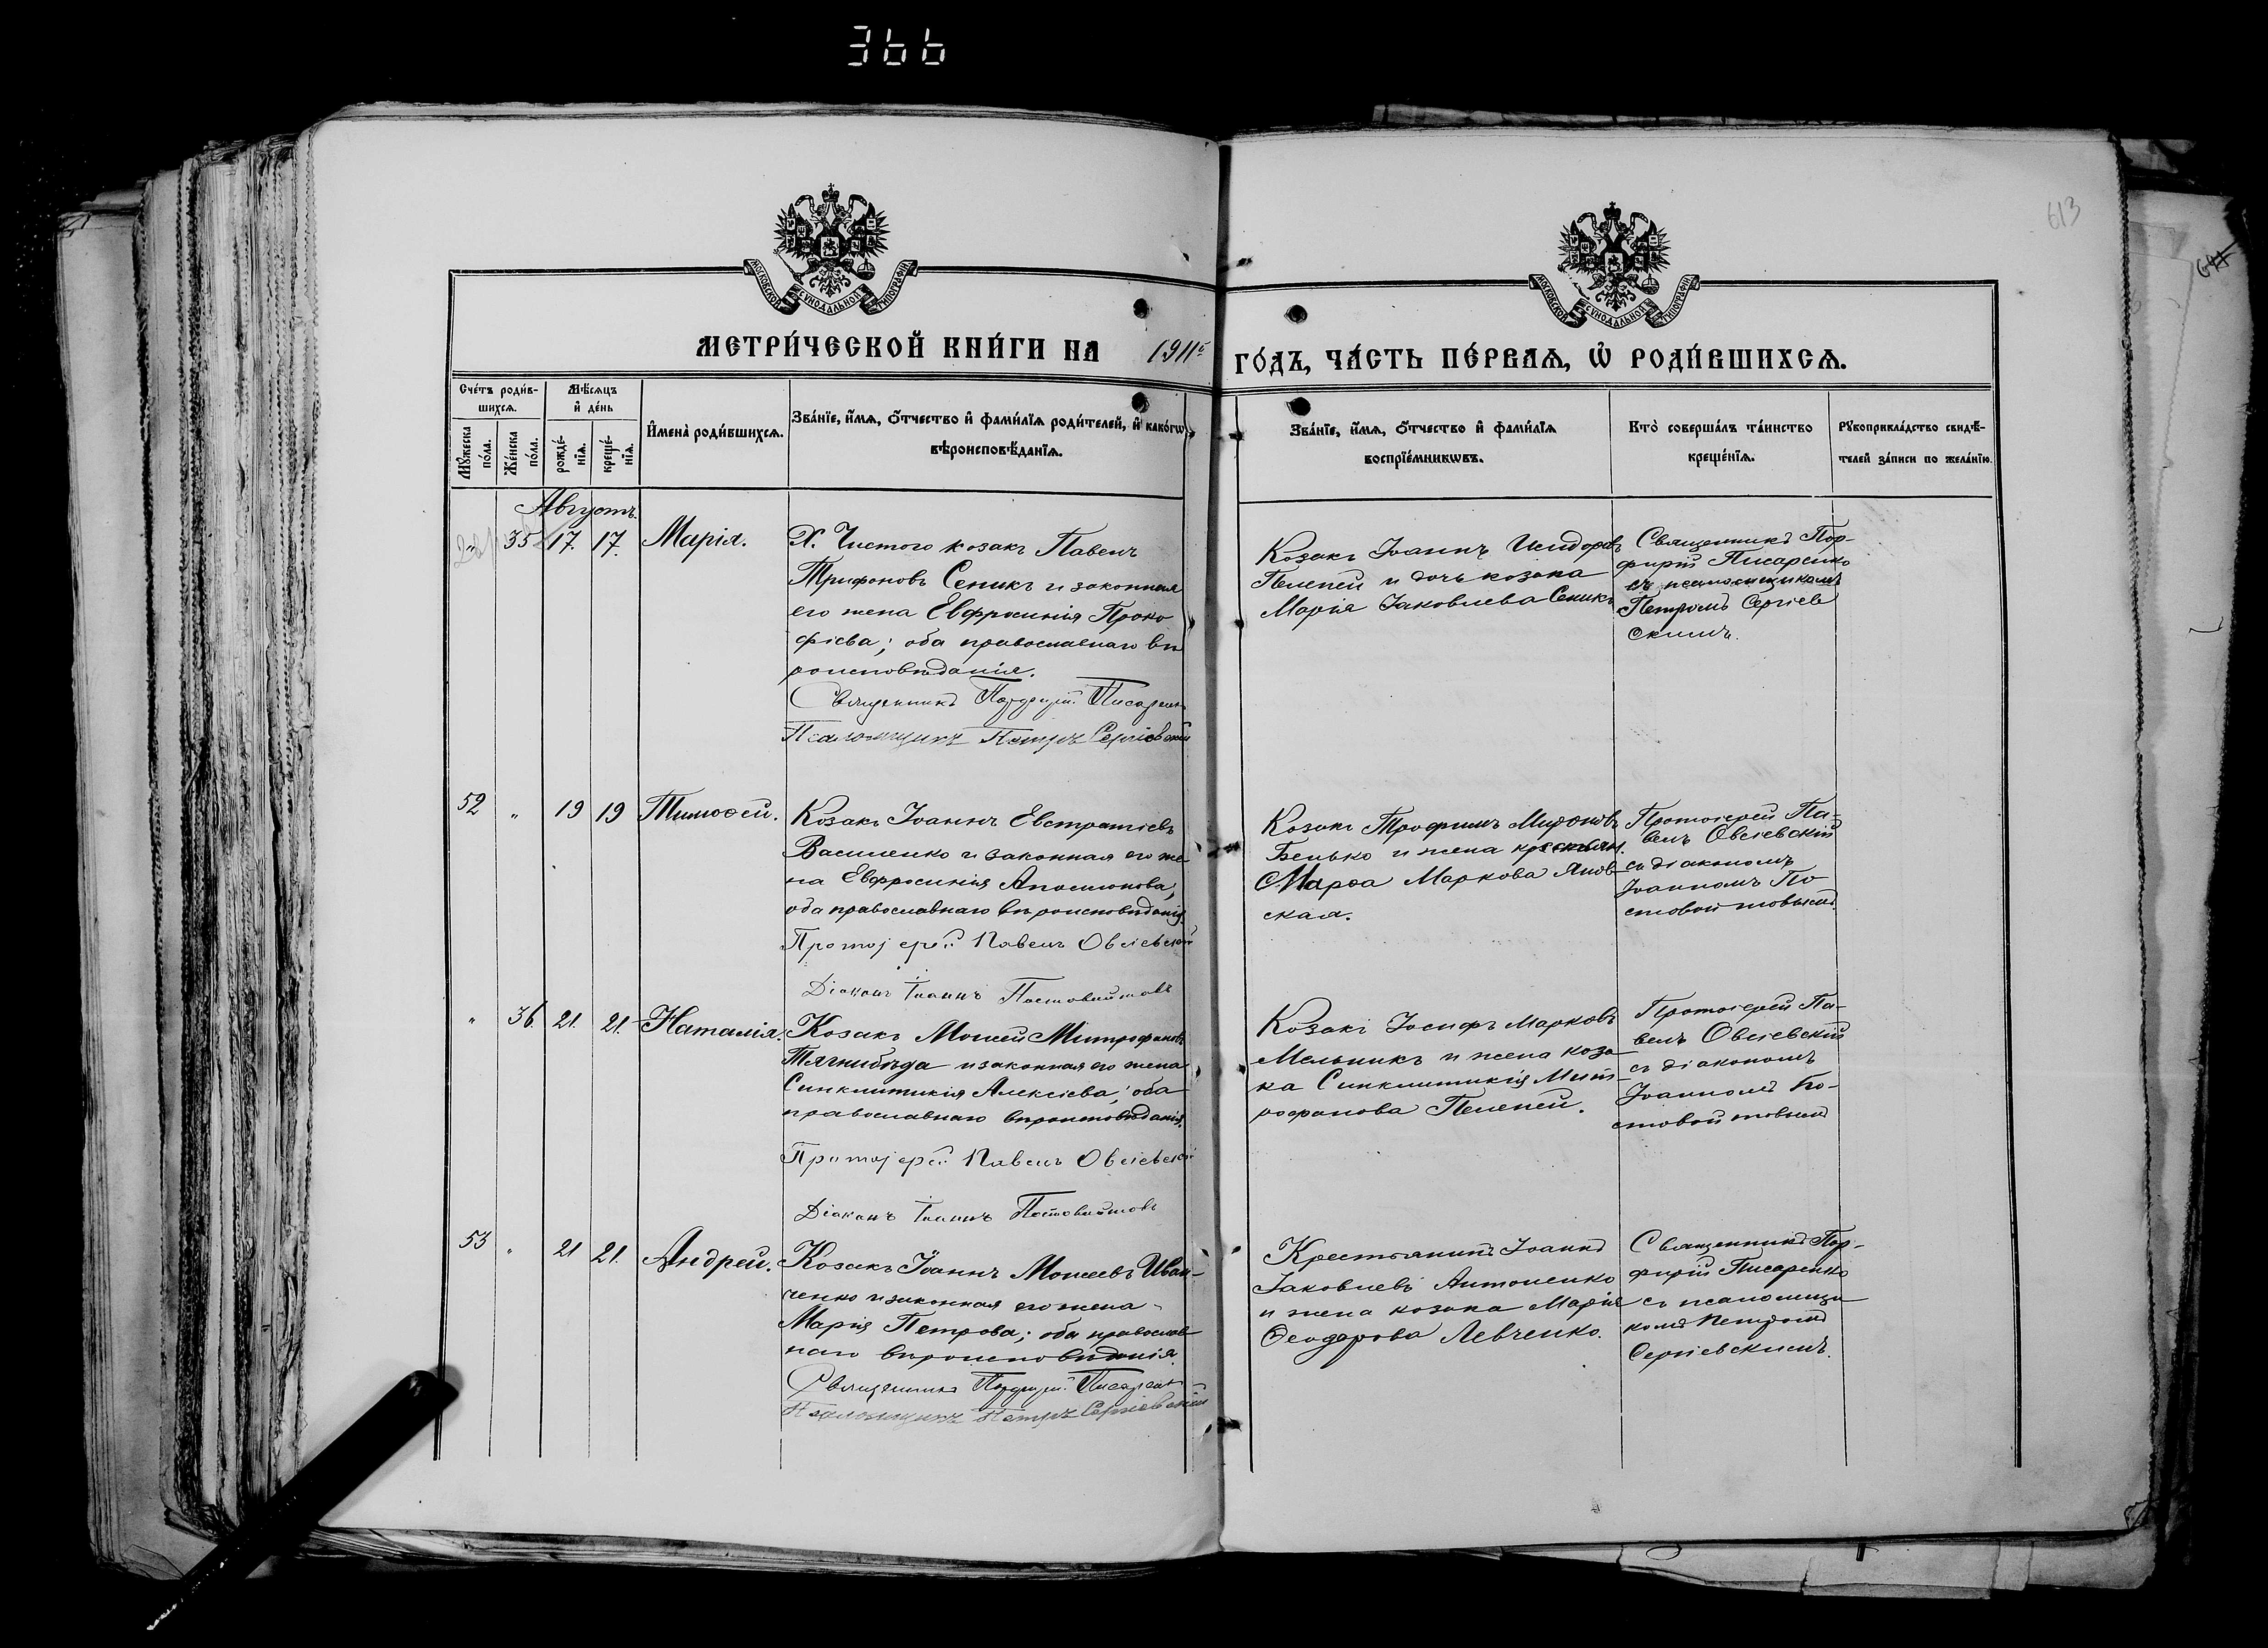 366
613
МОСКОВСКОЙ СѴНОДАЛЬНОЙ ТИПОГРАФІИ
МОСКОВСКОЙ СѴНОДАЛЬНОЙ ТИПОГРАФІИ
МЕТРИ́ЧЕСКОЙ КНИ́ГИ НА 1911 г.
ГО́ДЪ, ЧА́СТЬ ПЕ́РВАѦ, Ѡ҆ РОДИ́ВШИХСѦ.
Сче́тъ роди́в-
шихсѧ.
Мꙋ́жеска по́ла.
Же́нска по́ла.
Мѣ́сѧцъ
и҆ де́нь
рожде́-
нїѧ.
креще́-
нїѧ.
И҆мена̀ роди́вшихсѧ.
Зва́нїе, и҆́мѧ, ѻ҆́тчество и҆ фами́лїѧ роди́телей, и҆ како́гѡ
вѣроисповѣ́данїѧ.
Зва́нїе, и҆́мѧ, ѻ҆́тчество и҆ фами́лїѧ
воспрїе́мникѡвъ.
Кто̀ соверша́лъ та́инство
креще́нїѧ.
Рꙋкоприкла́дство свидѣ́-
телей за́писи по жела́нїю.
Августъ.
35 17. 17. Марія.
Х. Чистого козакъ Павелъ
Трифоновъ Сеникъ и законная
его жена Евфросинія Проко
фіева; оба православнаго вѣ
роисповѣданія.
Священникъ Порфирій Писаренко
Псаломщикъ Петръ Сергіевскій
Козакъ Іоаннъ Исидоровъ
Пелепей и дочь козака
Марія Іаковлева Сеникъ
Священникъ Пор-
фирій Писаренко
съ псаломщикомъ
Петромъ Сергіев
скимъ.
52 " 19 19 Тимоѳей.
Козакъ Іоаннъ Евстратіевъ
Василенко и законная его же-
на Евфросинія Аполлонова;
оба православнаго вѣроисповѣданія.
Протоіерей Павелъ Овсіевскій
Діаконъ Іоаннъ Постовойтовъ
Козакъ Трофимъ Мироновъ
Бенько и жена крестьян.
Марѳа Маркова Янов-
ская.
Протоіерей Па-
велъ Овсіевскій
съ діакономъ
Іоанномъ По
стовойтовымъ.
" 36. 21. 21. Наталія.
Козакъ Моисей Митрофановъ
Тягнибѣда и законная его жена
Синклитикія Алексіева; оба
православнаго вѣроисповѣданія.
Протоіерей Павелъ Овсіевскій
Діаконъ Іоаннъ Постовойтовъ
Козакъ Іосифъ Марковъ
Мельникъ и жена коза-
ка Синклитикія Мит-
рофанова Пелепей.
Протоіерей Па-
велъ Овсіевскій
съ діакономъ
Іоанномъ По-
стовойтовымъ
53 " 21 21. Андрей.
Козакъ Іоаннъ Моисеевъ Иван-
ченко и законная его жена
Марія Петрова; оба православ
наго вѣроисповѣданія.
Священникъ Порфирій Писаренко
Псаломщикъ Петръ Сергіевскій
Крестьянинъ Іоаннъ
Іаковлевъ Антоненко
и жена козака Марія
Ѳеодорова Левченко.
Священникъ Пор-
фирій Писаренко
съ псаломщи
комъ Петромъ
Сергіевскимъ.